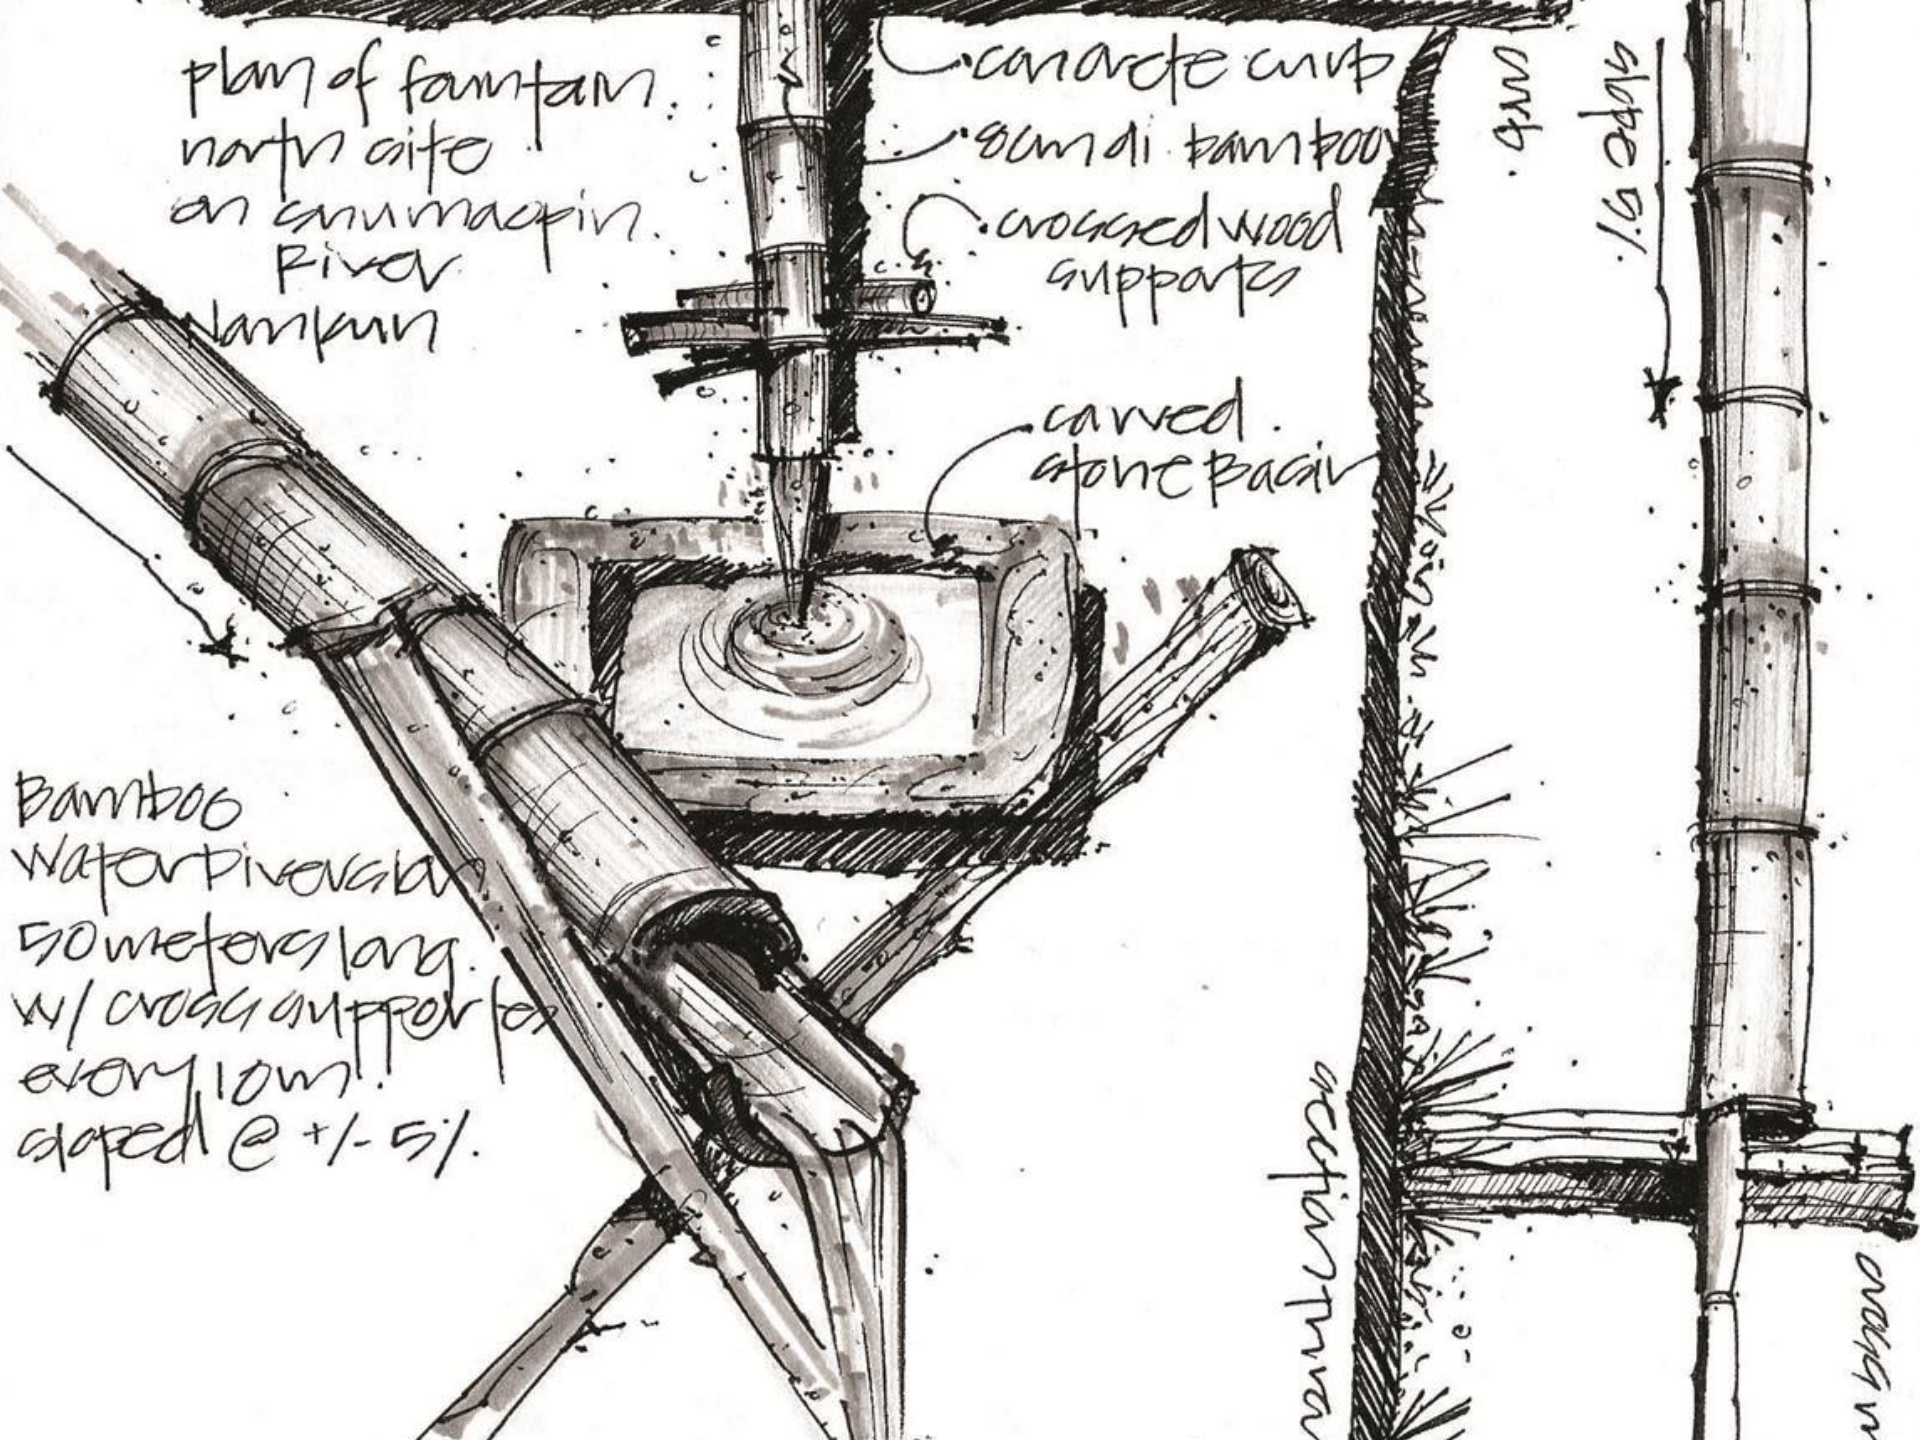 plan of fountain.
north site
on
River
Nankun
concrete curb
8cm di. bamboo
crossed wood
supports
carved
stone Basin
Bamboo
Water Diversion
50 meters long.
w/ cross supportes
every 10m.
sloped @ +/- 5%.
curb.
slope 5%
section thru
cross w